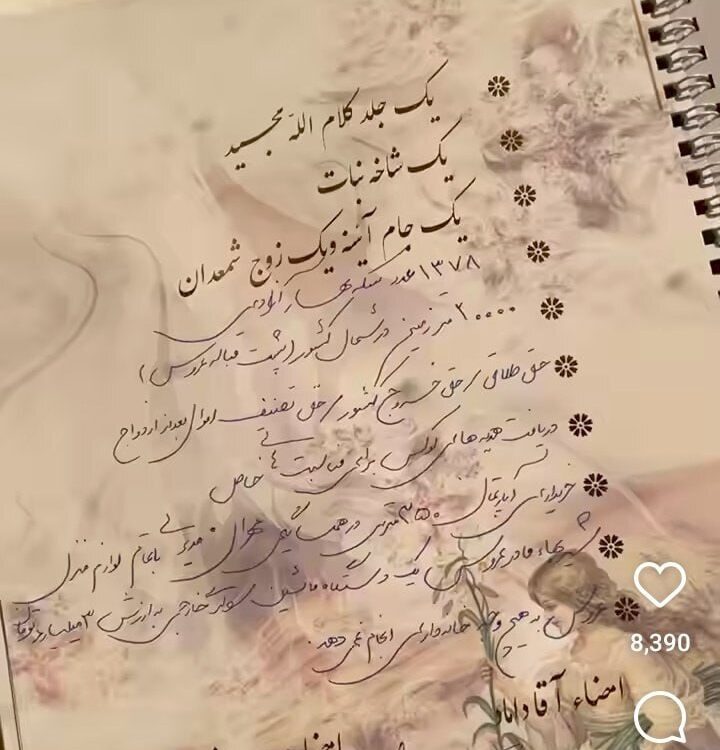 یک جلد کلام الله مجید
یک شاخه نبات
یک جام آینه و یک زوج شمعدان
۱۳۷۸ عدد سکه بهار آزادی
۲۰۰۰۰ متر زمین در شمال کشور (پشت قباله عروس)
حق طلاق، حق خروج کشور، حق تنصیف اموال بعد از ازدواج
دریافت هدیه های لوکس برای مناسبت های خاص
خریداری آپارتمان ۳۵۰ متری در تهران با تمام لوازم منزل
شیربهاء مادر عروس یک دستگاه ماشین سواری خارجی به ارزش ۳ میلیارد تومان
عروس به هیچ وجه خانه داری انجام نمی دهد.
امضاء آقا داماد
8,390